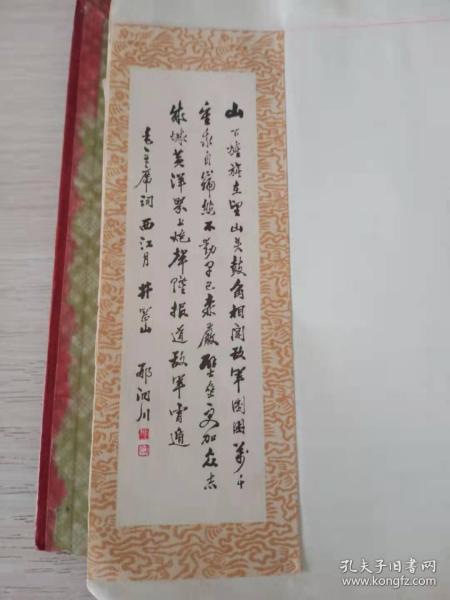 山下旌旗在望山头鼓角相闻敌軍围困萬千
重我自巋然不動早已森嚴壁垒更加众志
成城黄洋界上炮聲隆報道敌軍宵遁
毛主席词 西江月 井岡山 邢
孔夫子旧书网
www.kongfz.com